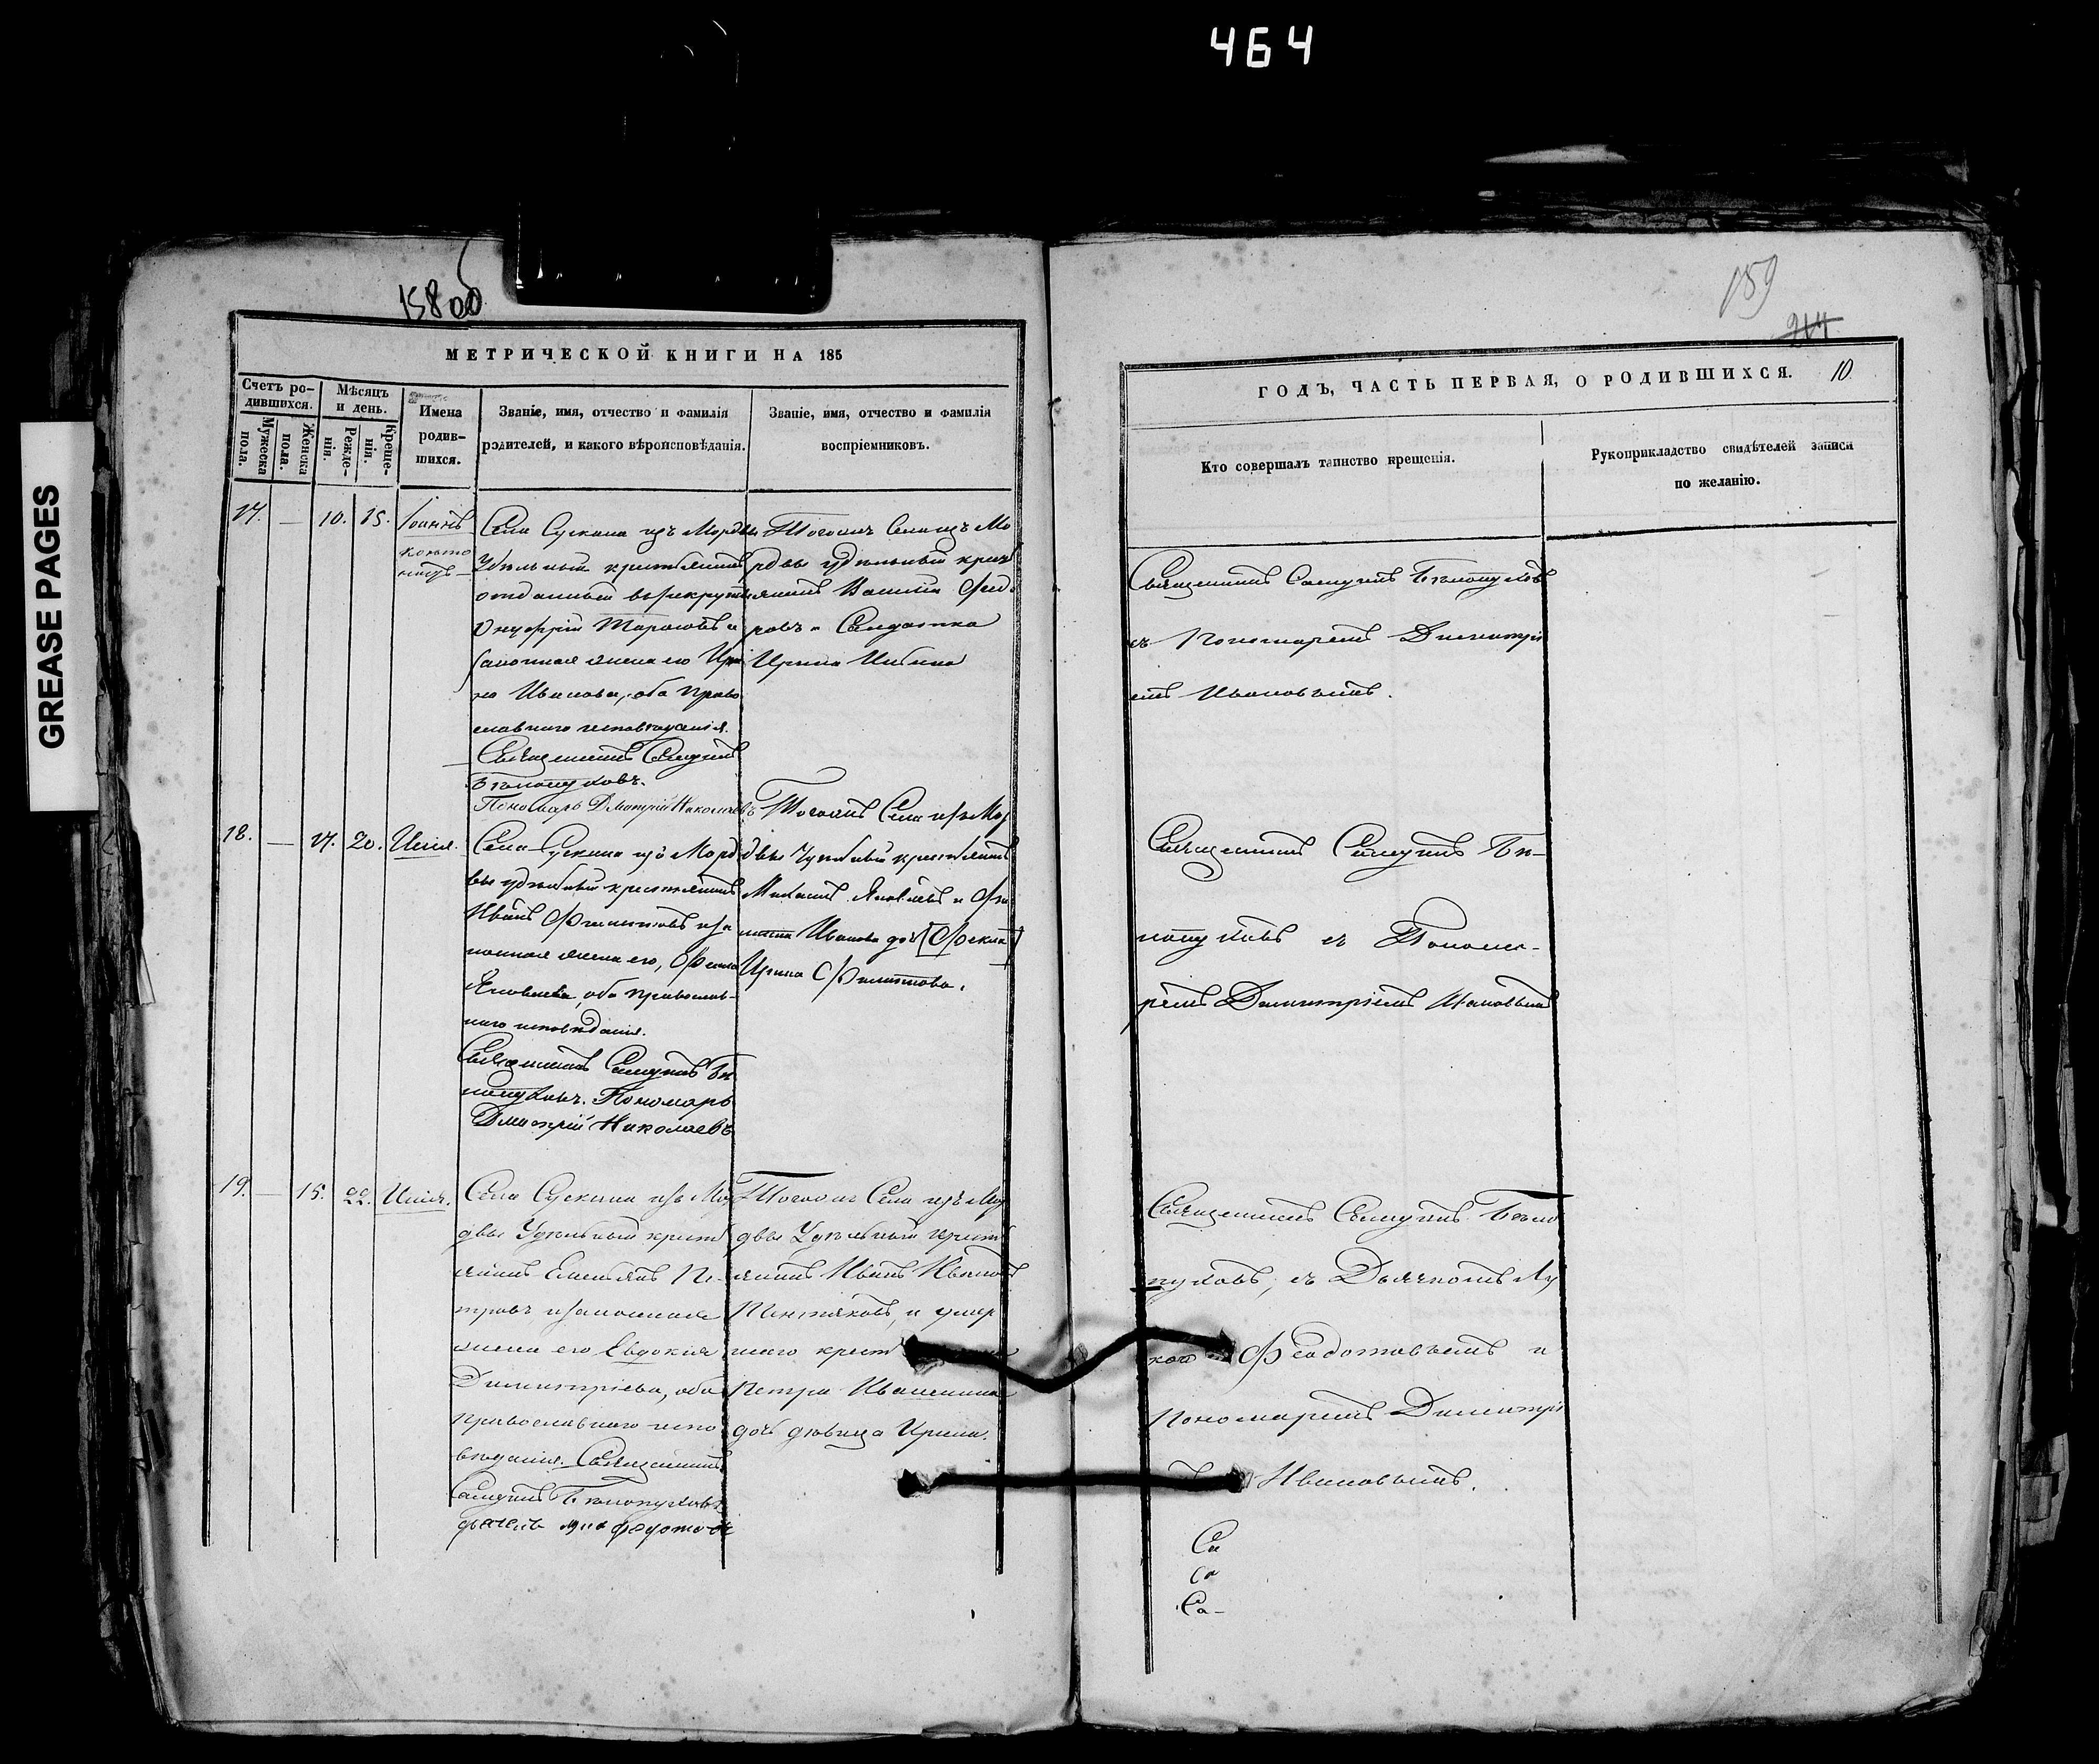 464
GREASE PAGES
158 об
МЕТРИЧЕСКОЙ КНИГИ НА 185
Счетъ ро-
дившихся.
Мужеска
пола.
Женска
пола.
Мѣсяцъ
и день.
Режде-
нія.
Креще-
нія.
Имена
родив-
шихся.
Званіе, имя, отчество и фамилія
рэдителей, и какого вѣроисповѣданія.
Званіе, имя, отчество и фамилія
воспріемниковъ.
17. — 10. 15. Іоаннъ
Села Сускана изъ Мордвы
Удѣльный крестьянинъ
отданный въ рекруты
Онуфрій Тарасовъ и
законная жена его Ири
на Иванова, оба Право
славнаго исповѣданія.
Священникъ Самуилъ
Бѣлопуховъ.
Пономарь Дмитрій Николаевъ
Тогожъ Села изъ Мо
рдвы удѣльный крес
янинъ Василій Фед
ровъ и Салдатка
Ирина
18. — 17. 20. Илія.
Села Сускана изъ Морд
вы удѣльный крестьянинъ
Иванъ Филиповъ и за
конная жена его,
Яковлева, оба православ-
наго исповѣданія.
Священникъ Самуилъ Бѣ
лопуховъ. Пономарь
Дмитрій Николаевъ
Тогожъ Села изъ Мор
двы Удѣльный крестьянинъ
Яковлевъ и
Иванова доч
Ирина Филипова.
19. — 15. 22. Илія.
Села Сускана изъ Мор
двы Удѣльный крест
янинъ Емельянъ Пе-
тровъ и законная
жена его Евдокия
Димитріева, оба
православнаго испо
вѣданія. Священникъ
Самуилъ Бѣлопуховъ
дьячекъ Лука Федотовъ
Тогожъ Села изъ Мор
двы Удѣльный крест
янинъ Иванъ Ивановъ
и умер
шаго крест
Петра
доч дѣвица Ирина.
159
10.
ГОДЪ, ЧАСТЬ ПЕРВАЯ, О РОДИВШИХСЯ.
Кто совершалъ таинство крещенія.
Рукоприкладство свидѣтелей записи
по желанію.
Священникъ Самуилъ Бѣлопуховъ
съ Пономаремъ Димитрі
емъ Ивановымъ.
Священникъ Самуилъ Бѣ-
лопуховъ съ Понома-
ремъ Димитріемъ Ивановымъ
Священникъ Самуилъ Бѣло
пуховъ, съ Дьячкомъ Лу
кою Феодотовымъ и
Пономаремъ Димитрі
Ивановымъ.
Са
Са
Са-